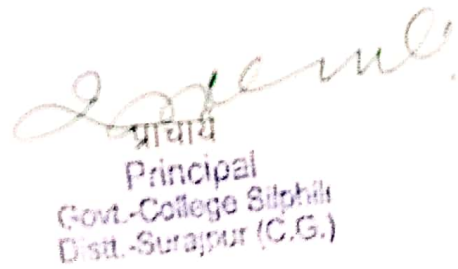 प्राचार्य
Principal
Govt.-College Silphili
Distt.-Surajpur (C.G.)